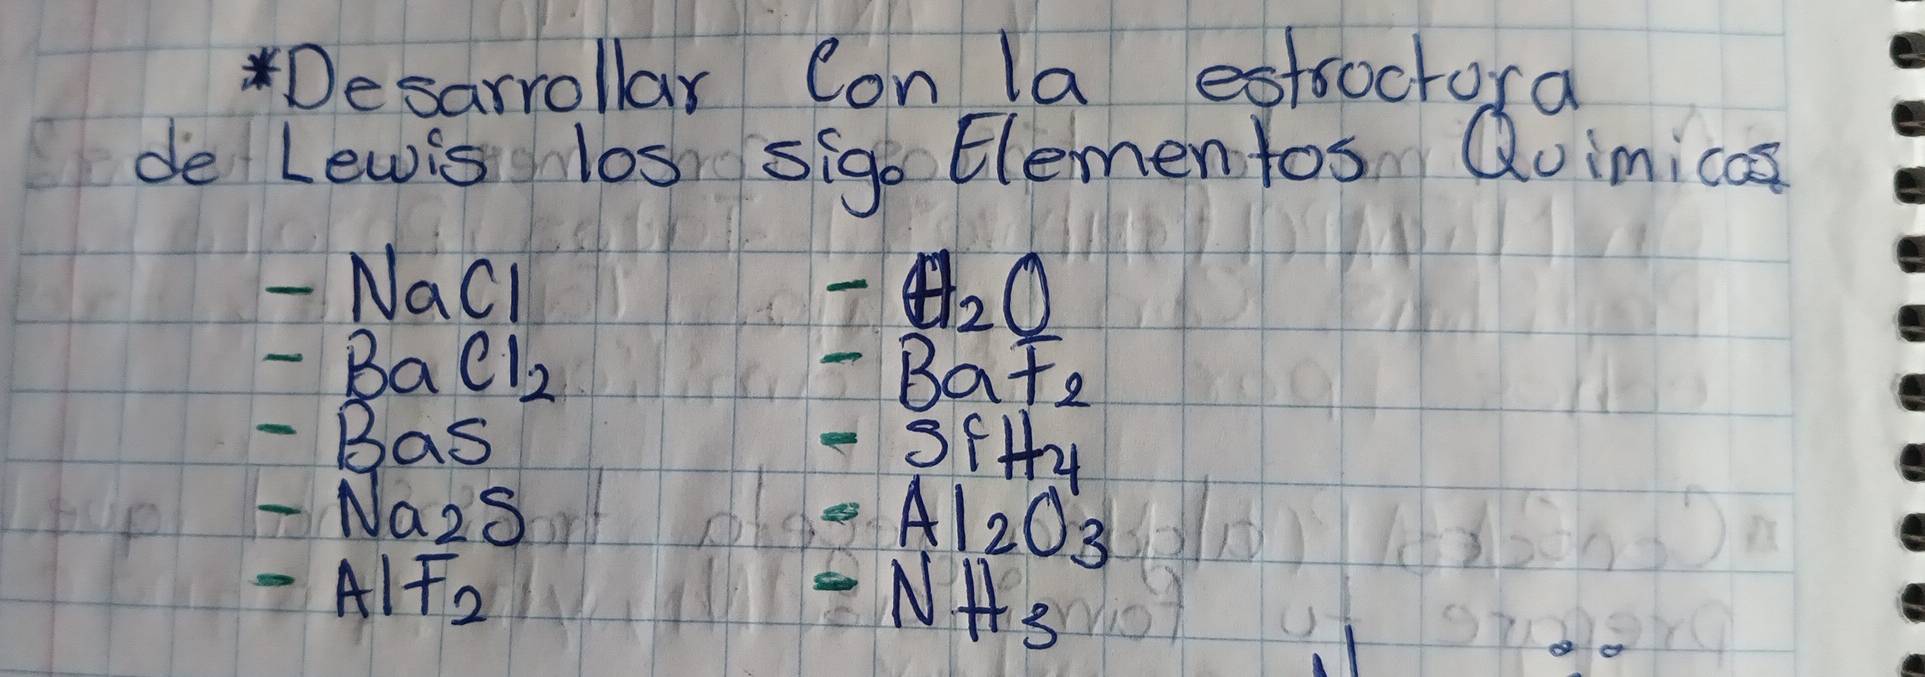 *Desarrollar Con la estroctora
de Lewis los sig. Elementos Quimicos
- NaCl
- BaCl₂
- BaS
- Na₂S
- AlF₂
- H₂O
- BaF₂
- SiH₄
- Al₂O₃
- NH₃